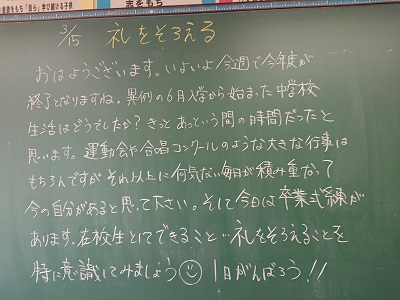 意見をもち「自ら」学び続ける子供
志をもち
3/15 礼をそろえる
おはようございます。いよいよ今週で今年度が
終了となりますね。異例の6月入学から始まった中学校
生活はどうでしたか?きっとあっという間の時間だったと
思います。運動会や合唱コンクールのような大きな行事は
もちろんですがそれ以上に何気ない毎日が積み重なって
今の自分があると思って下さい。そして今日は卒業式練が
あります。在校生としてできること…礼をそろえることを
特に意識してみましょう☺ 1日がんばろう!!